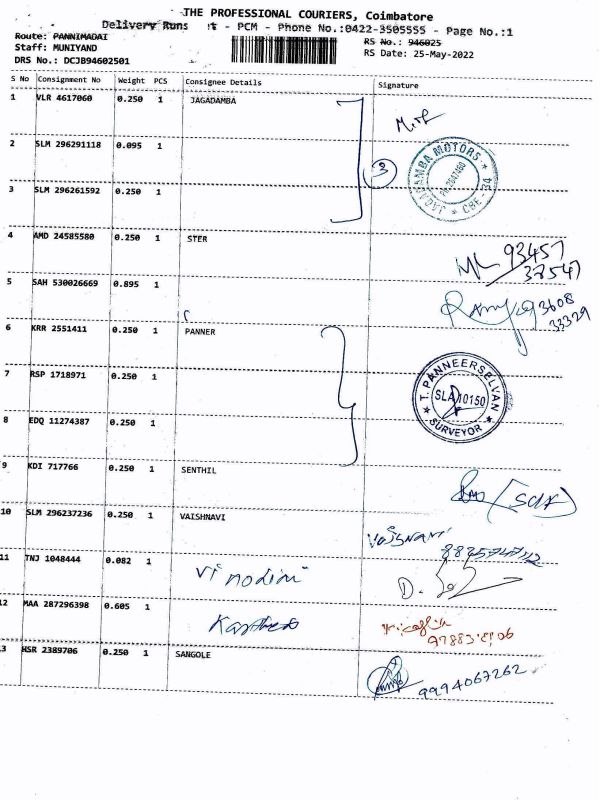 THE PROFESSIONAL COURIERS, Coimbatore
Delivery Runs - PCM - Phone No.:0422-3505555 - Page No.:1
Route: PANNIMADAI
RS No.: 946025
Staff: MUNIYAND
RS Date: 25-May-2022
DRS No.: DCJB94602501
S No Consignment No Weight PCS Consignee Details Signature
1 VLR 4617060 0.250 1 JAGADAMBA
2 SLM 296291118 0.095 1
3
JAGADAMBA MOTORS * CBE - 34 *
3 SLM 296261592 0.250 1
4 AMD 24585580 0.250 1 STER
93457
37547
5 SAH 530026669 0.895 1
93608
33329
6 KRR 2551411 0.250 1 PANNER
7 RSP 1718971 0.250 1
T. PANNEERSELVAN
SLA 10150
* SURVEYOR *
8 EDQ 11274387 0.250 1
9 KDI 717766 0.250 1 SENTHIL
10 SLM 296237236 0.250 1 VAISHNAVI
Vaishnavi
11 TNJ 1048444 0.082 1 Vinodini
12 MAA 287296398 0.605 1
13 HSR 2389706 0.250 1 SANGOLE
9994067262